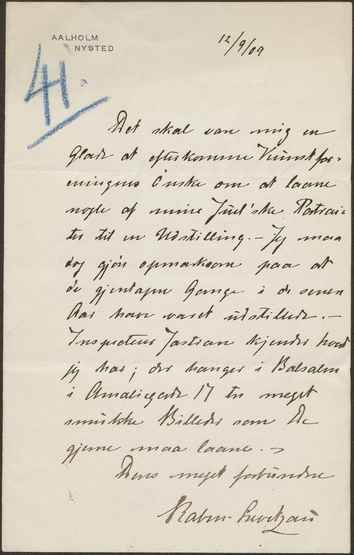 AALHOLM
NYSTED
12/9/09
41.
Det skal være mig en
Glæde at efterkomme Kunstfor-
eningens Ønske om at laane
nogle af mine Juel'ske Portrai-
ter til en Udstilling. – Jeg maa
dog gjøre opmærksom paa at
de gjentagne Gange i de senere
Aar have været udstillede. –
Inspecteur kjender hvad
jeg har; der hænger i Balsalen
i Amaliegade 17 to meget
smukke Billeder som De
gjerne maa laane. –
Deres meget forbundne
Raben-Levetzau